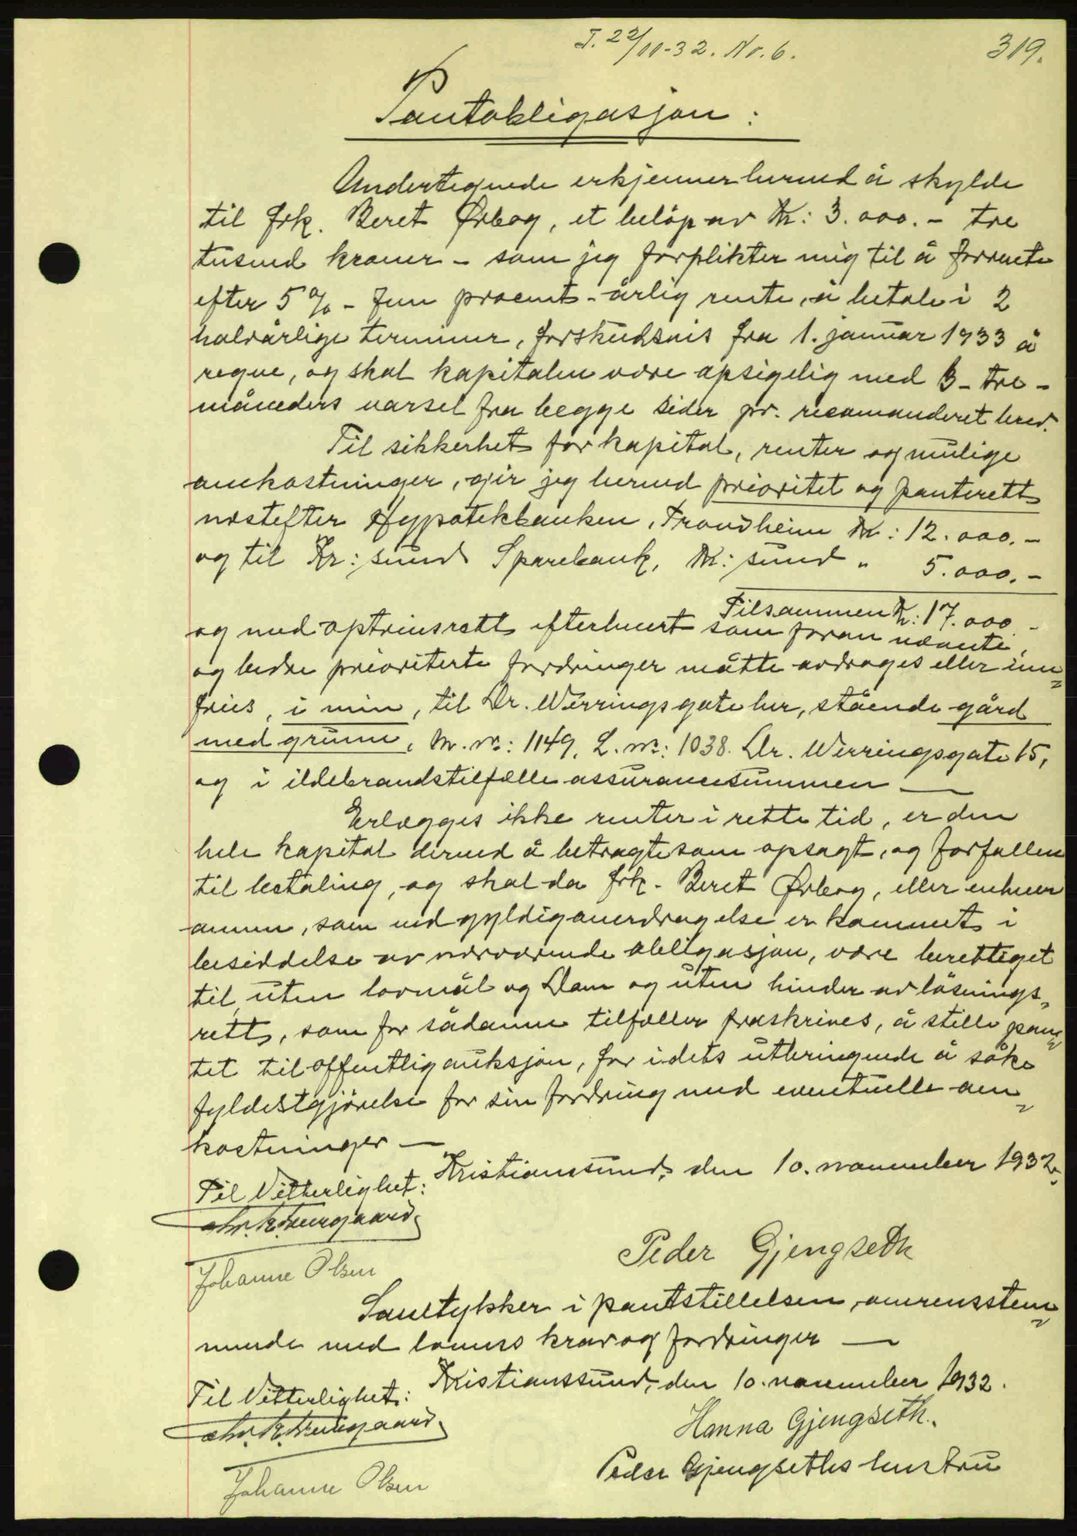 T. 22/11-32. No. 6.
319.
Pantobligasjon:
Undertegnede erkjenner herved å skylde
til frk. Beret Ørbog, et beløp av Kr: 3.000.- tre
tusend kroner - som jeg forplikter mig til å forrente
efter 5 % - fem procent - årlig rente, å betale i 2
halvårlige terminer, forskudsvis fra 1. januar 1933 å
regne, og skal kapitalen være opsigelig med 3 - tre -
måneders varsel fra begge sider pr. recomanderet brev.
Til sikkerhet for kapital, renter og mulige
omkostninger, gir jeg herved prioritet og panterett
næstefter Hypotekbanken, Trondheim Kr: 12.000.-
og til Kr:sund Sparebank, Kr:sund " 5.000.-
Tilsammen Kr: 17.000.-
og med optrinsrett efterhvert som foran nævnte,
og bedre prioriterte fordringer måtte avdrages eller inn-
fries, i min, til Dr. Werringsgate her, stående gård
med grunn, M. nr: 1149, L. nr: 1038. Dr. Werringsgate 15,
og i ildebrandstilfælle assurancesummen —
Erlægges ikke renter i rette tid, er den
hele kapital dermed å betragte som opsagt, og forfallen
til betaling, og skal da frk. Beret Ørbog, eller enhver
annen, som ved gyldig overdragelse er kommet i
besiddelse av nærværende obligasjon, være berettiget
til, uten lovmål og Dom og uten hinder av løsnings-
rett, som for sådanne tilfæller fraskrives, å stille pan-
tet til offentlig auksjon, for i dets utbringende å søke
fyldestgjørelse for sin fordring med eventuelle om-
kostninger —
Kristianssund, den 10. november 1932.
Til Vitterlighet:
Johanne Olsen
Peder Gjengseth
Samtykker i pantstillelsen, overensstem-
mende med lovens krav og fordringer —
Kristianssund, den 10. november 1932.
Til Vitterlighet:
Johanne Olsen
Hanna Gjengseth.
Peder Gjengseths hustru